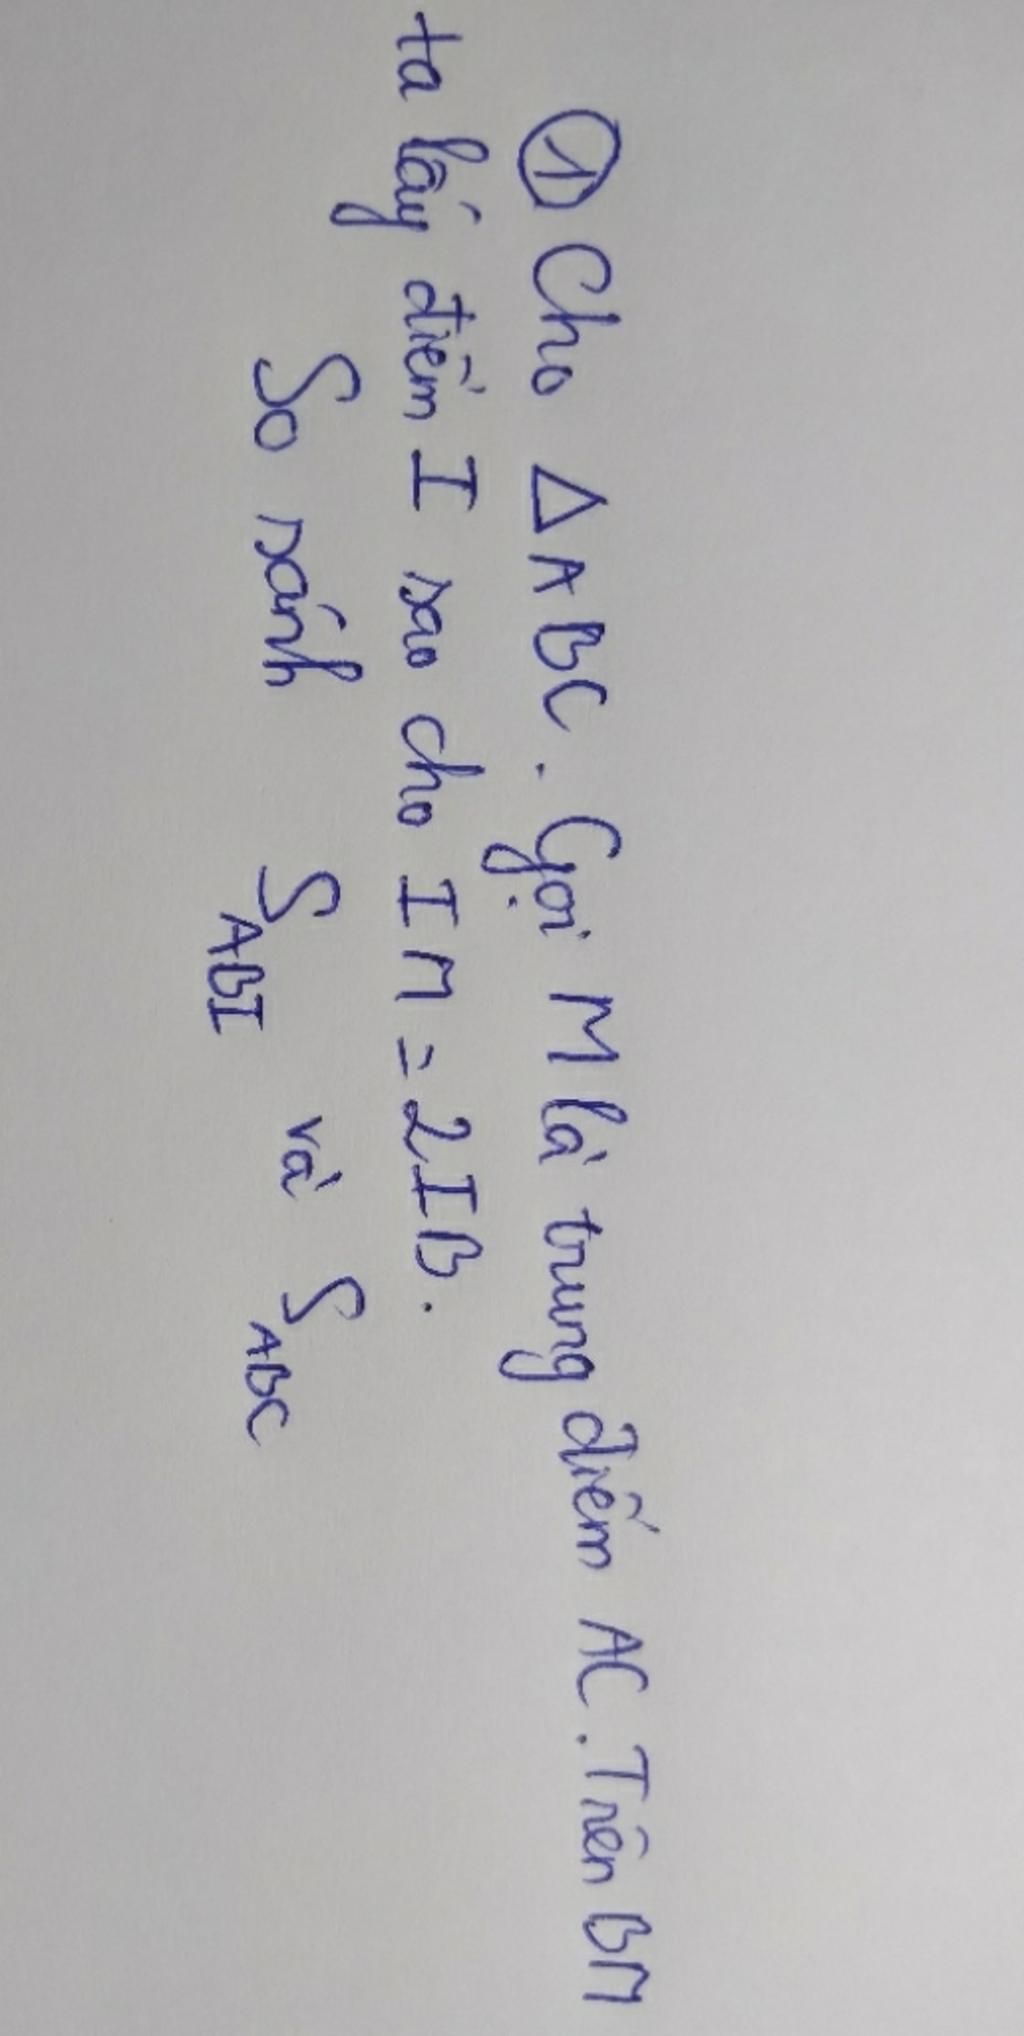 ① Cho △ABC. Gọi M là trung điểm AC. Trên BM
ta lấy điểm I sao cho IM = 2IB.
So sánh S_ABI và S_ABC